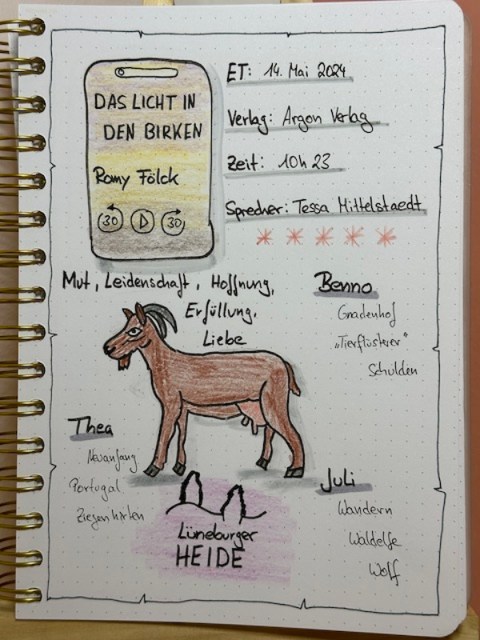 DAS LICHT IN
DEN BIRKEN
Romy Fölck
30 30
ET: 14. Mai 2024
Verlag: Argon Verlag
Zeit: 10h 23
Sprecher: Tessa Mittelstaedt
Mut, Leidenschaft, Hoffnung,
Erfüllung,
Liebe
Benno
Gnadenhof
„Tierflüsterer"
Schulden
Thea
Neuanfang
Portugal
Ziegenhirten
Juli
Wandern
Waldelfe
Wolf
Lüneburger
HEIDE